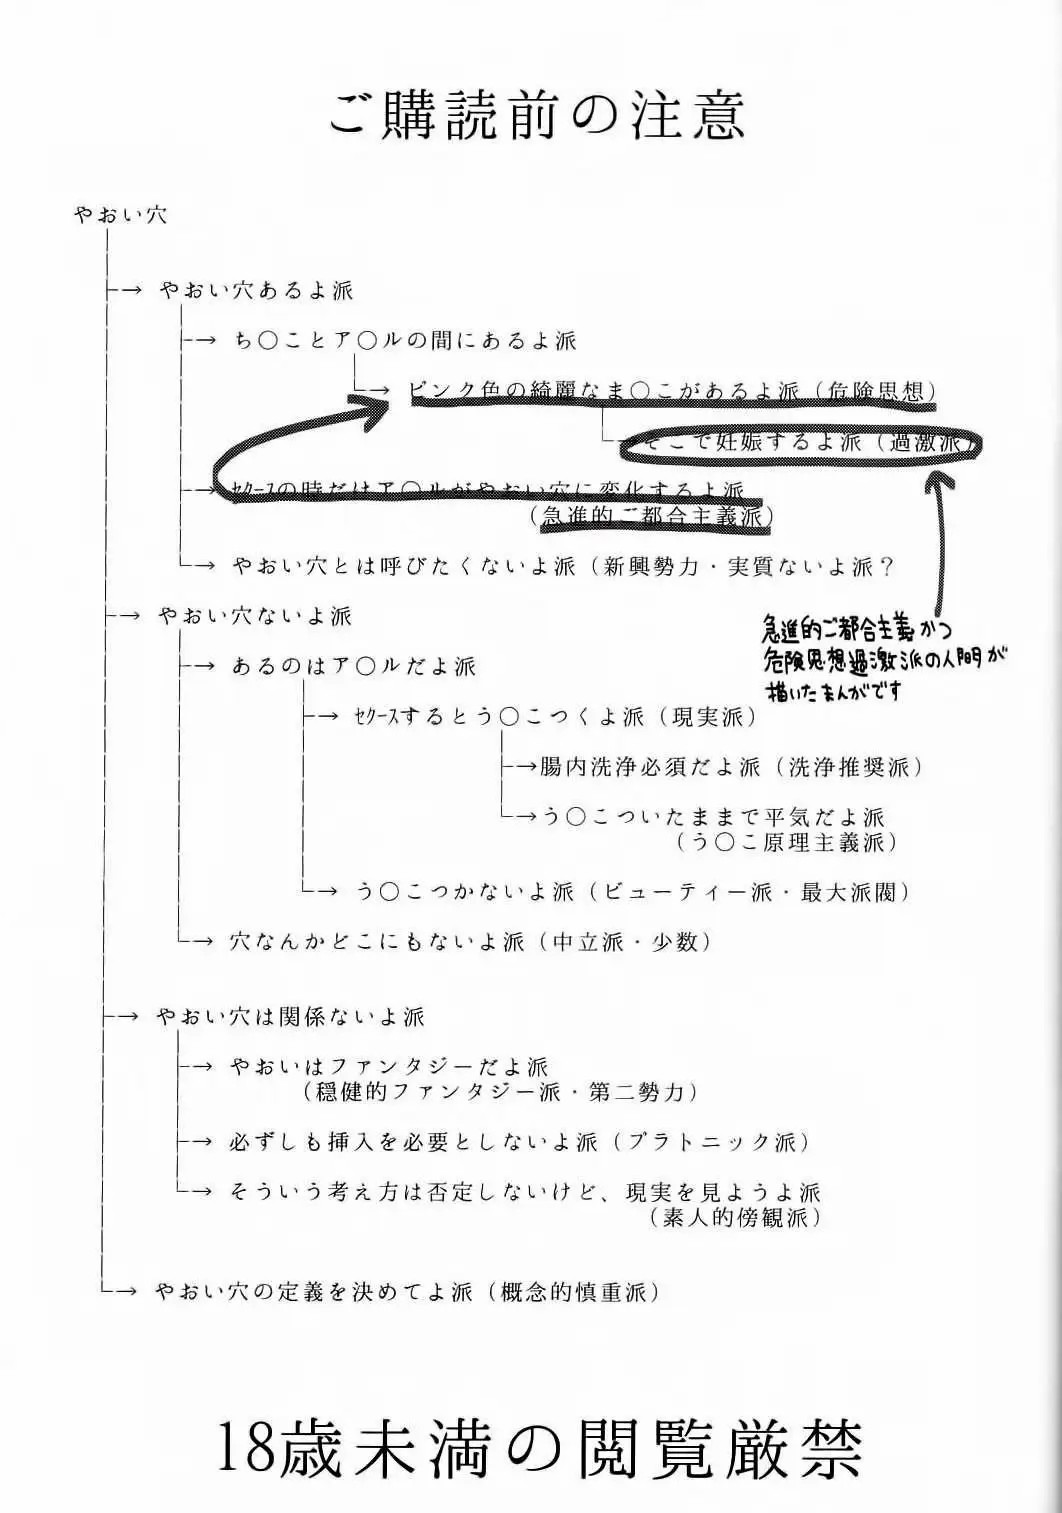 ご購読前の注意
やおい穴
→ やおい穴あるよ派
→ ち〇ことア〇ルの間にあるよ派
→ ピンク色の綺麗なま〇こがあるよ派（危険思想）
→そこで妊娠するよ派（過激派）
→ ｾｸｰｽの時だけア〇ルがやおい穴に変化するよ派
（急進的ご都合主義派）
→ やおい穴とは呼びたくないよ派（新興勢力・実質ないよ派？
→ やおい穴ないよ派
急進的ご都合主義かつ
危険思想過激派の人間が
描いたまんがです
→ あるのはア〇ルだよ派
→ ｾｸｰｽするとう〇こつくよ派（現実派）
→腸内洗浄必須だよ派（洗浄推奨派）
→う〇こついたままで平気だよ派
（う〇こ原理主義派）
→ う〇こつかないよ派（ビューティー派・最大派閥）
→ 穴なんかどこにもないよ派（中立派・少数）
→ やおい穴は関係ないよ派
→ やおいはファンタジーだよ派
（穏健的ファンタジー派・第二勢力）
→ 必ずしも挿入を必要としないよ派（プラトニック派）
→ そういう考え方は否定しないけど、現実を見ようよ派
（素人的傍観派）
→ やおい穴の定義を決めてよ派（概念的慎重派）
18歳未満の閲覧厳禁